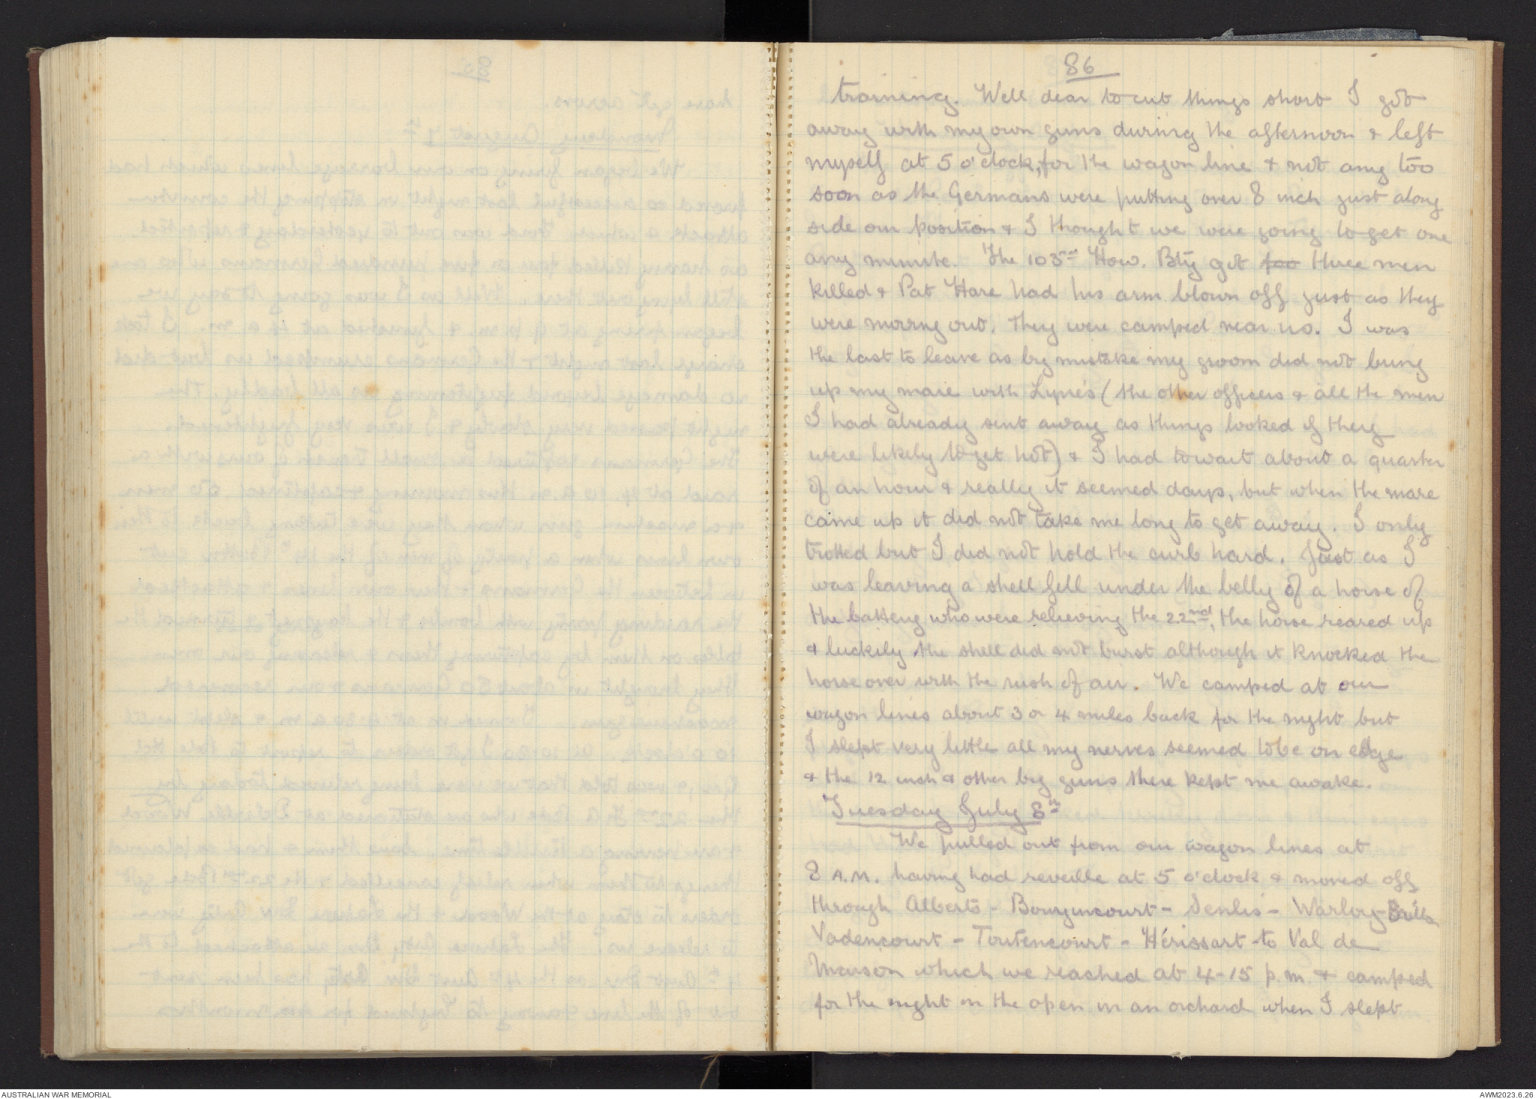 86
training. Well dear to cut things short I got
away with my own guns during the afternoon & left
myself at 5 o'clock, for the wagon line & not any too
soon as the Germans were putting over 8 inch just along
side our position & I thought we were going to get one
any minute. The 103rd How. Bty got too three men
killed & Pat Hare had his arm blown off just as they
were moving out. They were camped near us. I was
the last to leave as by mistake my groom did not bring
up my mare with Lyne's (the other officers & all the men
I had already sent away as things looked if they
were likely to get hot) & I had to wait about a quarter
of an hour & really it seemed days, but when the mare
came up it did not take me long to get away. I only
trotted but I did not hold the curb hard. Just as I
was leaving a shell fell under the belly of a horse of
the battery who were relieving the 22nd, the horse reared up
& luckily the shell did not burst although it knocked the
horse over with the rush of air. We camped at our
wagon lines about 3 or 4 miles back for the night but
I slept very little all my nerves seemed to be on edge
& the 12 inch & other big guns there kept me awake.
Tuesday July 8th
We pulled out from our wagon lines at
8 A.M. having had reveille at 5 o'clock & moved off
through Alberts - Bouzincourt - Senlis - Warloy-Baillon
Vadencourt - Toutencourt - Hérissart - to Val de
Maison which we reached at 4-15 p.m. & camped
for the night in the open in an orchard when I slept
AUSTRALIAN WAR MEMORIAL
AWM2023.6.26